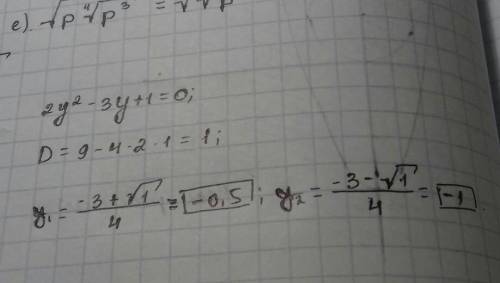 е). √p ∜p³ = √√p
2y² - 3y + 1 = 0;
D = 9 - 4 · 2 · 1 = 1;
y₁ = (-3 + √1)/4 = -0,5; y₂ = (-3 - √1)/4 = -1